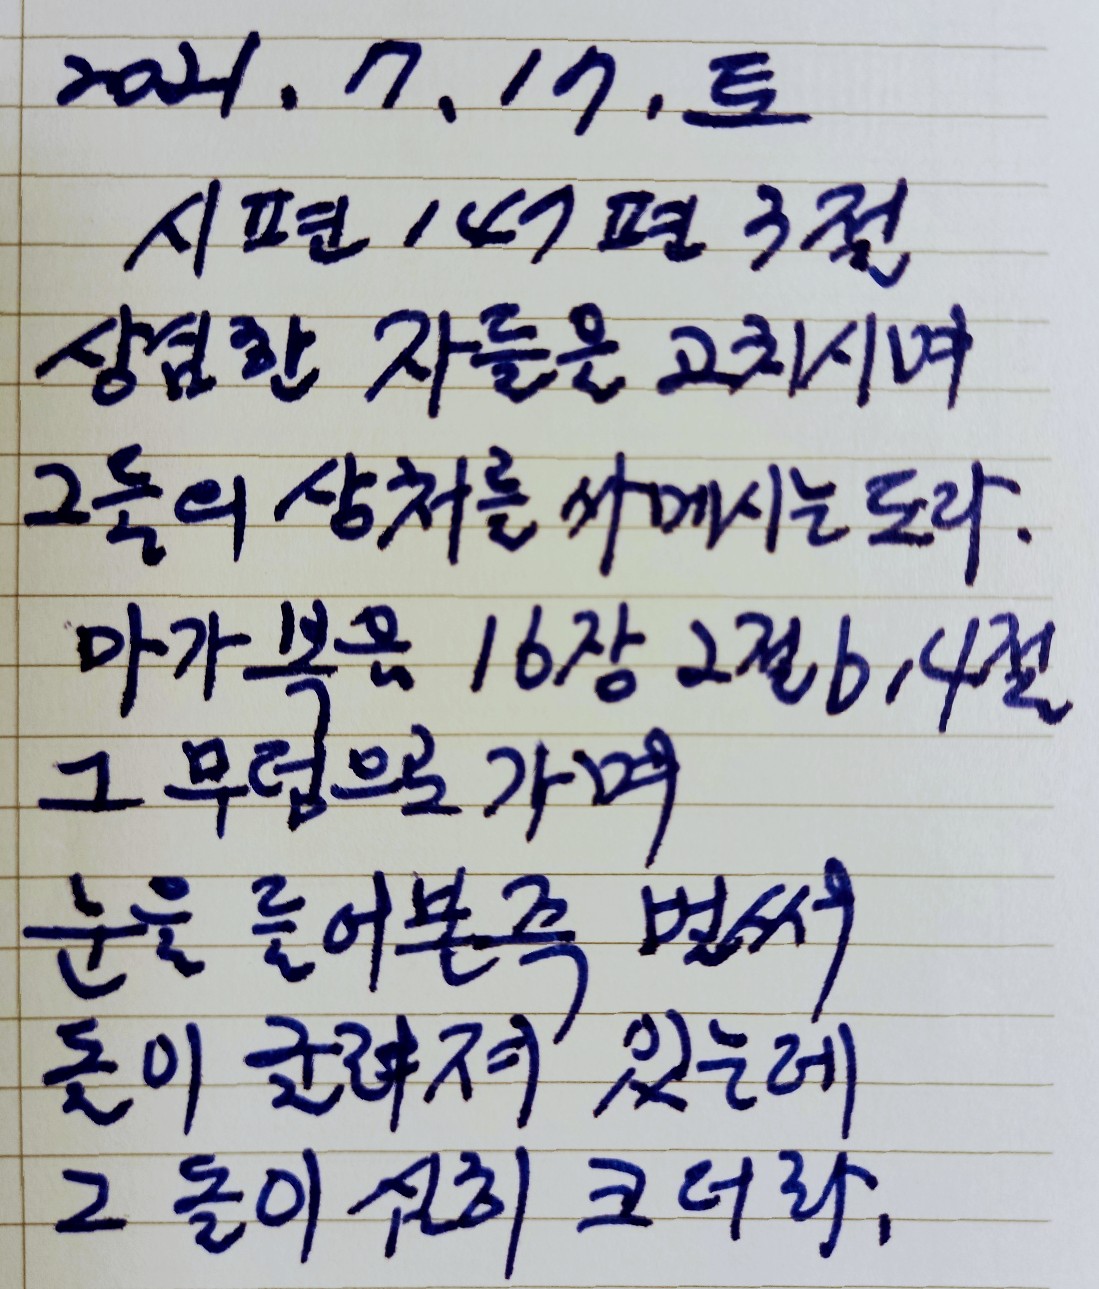 2021. 7. 17. 토
시편 147편 3절
상심한 자들을 고치시며
그들의 상처를 싸메시는도다.
마가복음 16장 2절b, 4절
그 무덤으로 가며
눈을 들어본즉 벌써
돌이 굴려져 있는데
그 돌이 심히 크더라.